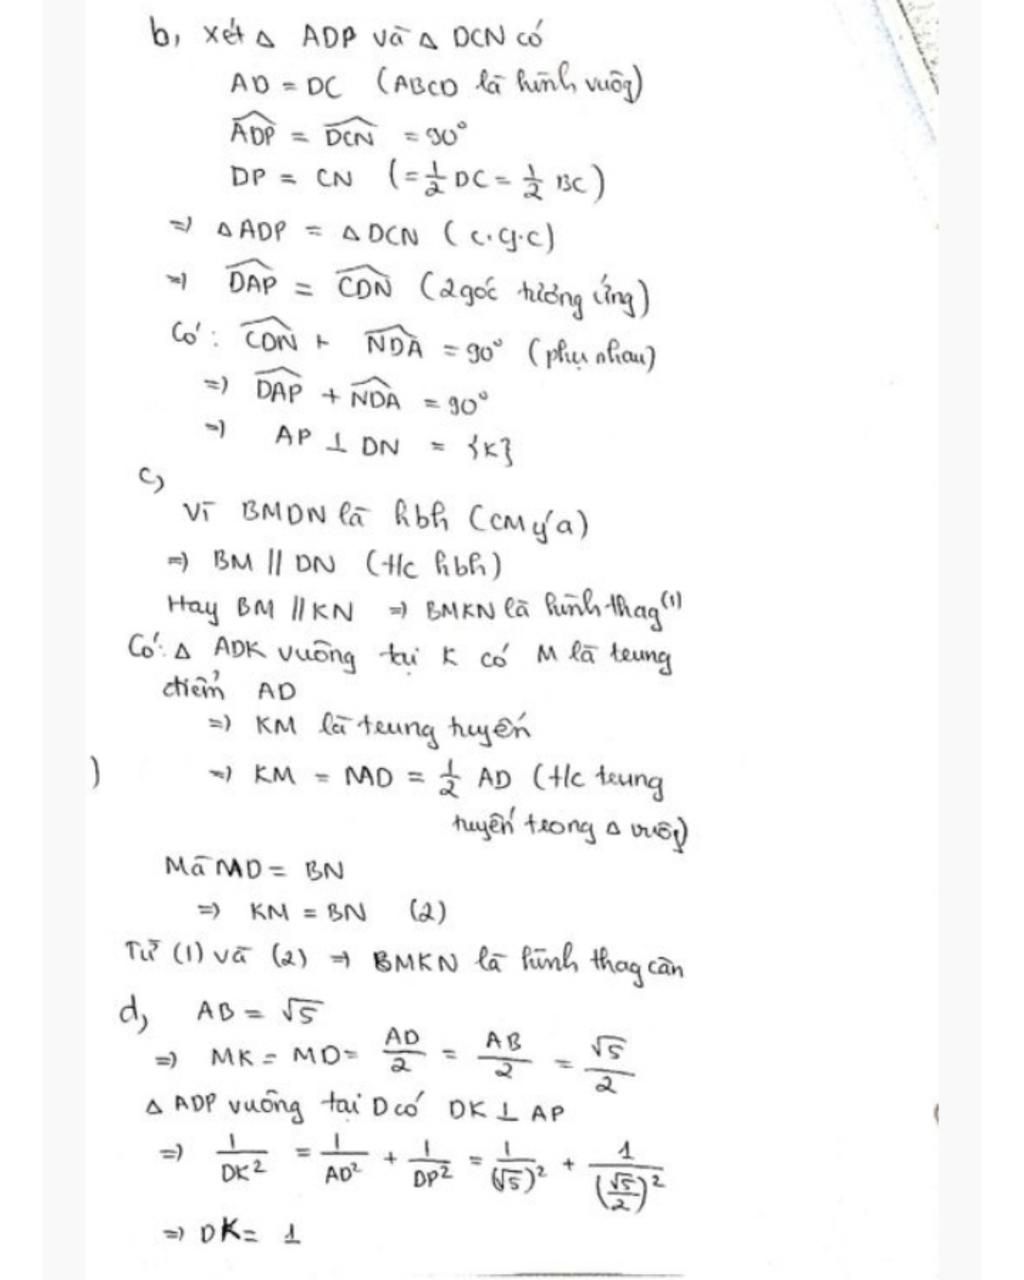 b, xét Δ ADP và Δ DCN có
AD = DC (ABCD là hình vuôg)
ADP = DCN = 90°
DP = CN (= 1/2 DC = 1/2 BC)
=> Δ ADP = Δ DCN (c.g.c)
=> DAP = CDN (2 góc tương ứng)
Có: CDN + NDA = 90° (phụ nhau)
=> DAP + NDA = 90°
=> AP ⊥ DN = {K}
c,
Vì BMDN là hbh (CM ý a)
=> BM // DN (t/c hbh)
Hay BM // KN => BMKN là hình thag (1)
Có: Δ ADK vuông tại K có M là trung
điểm AD
=> KM là trung tuyến
) => KM = MD = 1/2 AD (t/c trung
tuyến trong Δ vuôg)
Mà MD = BN
=> KM = BN (2)
Từ (1) và (2) => BMKN là hình thag cân
d, AB = √5
=> MK = MD = AD/2 = AB/2 = √5/2
Δ ADP vuông tại D có DK ⊥ AP
=> 1/DK² = 1/AD² + 1/DP² = 1/(√5)² + 1/(√5/2)²
=> DK = 1